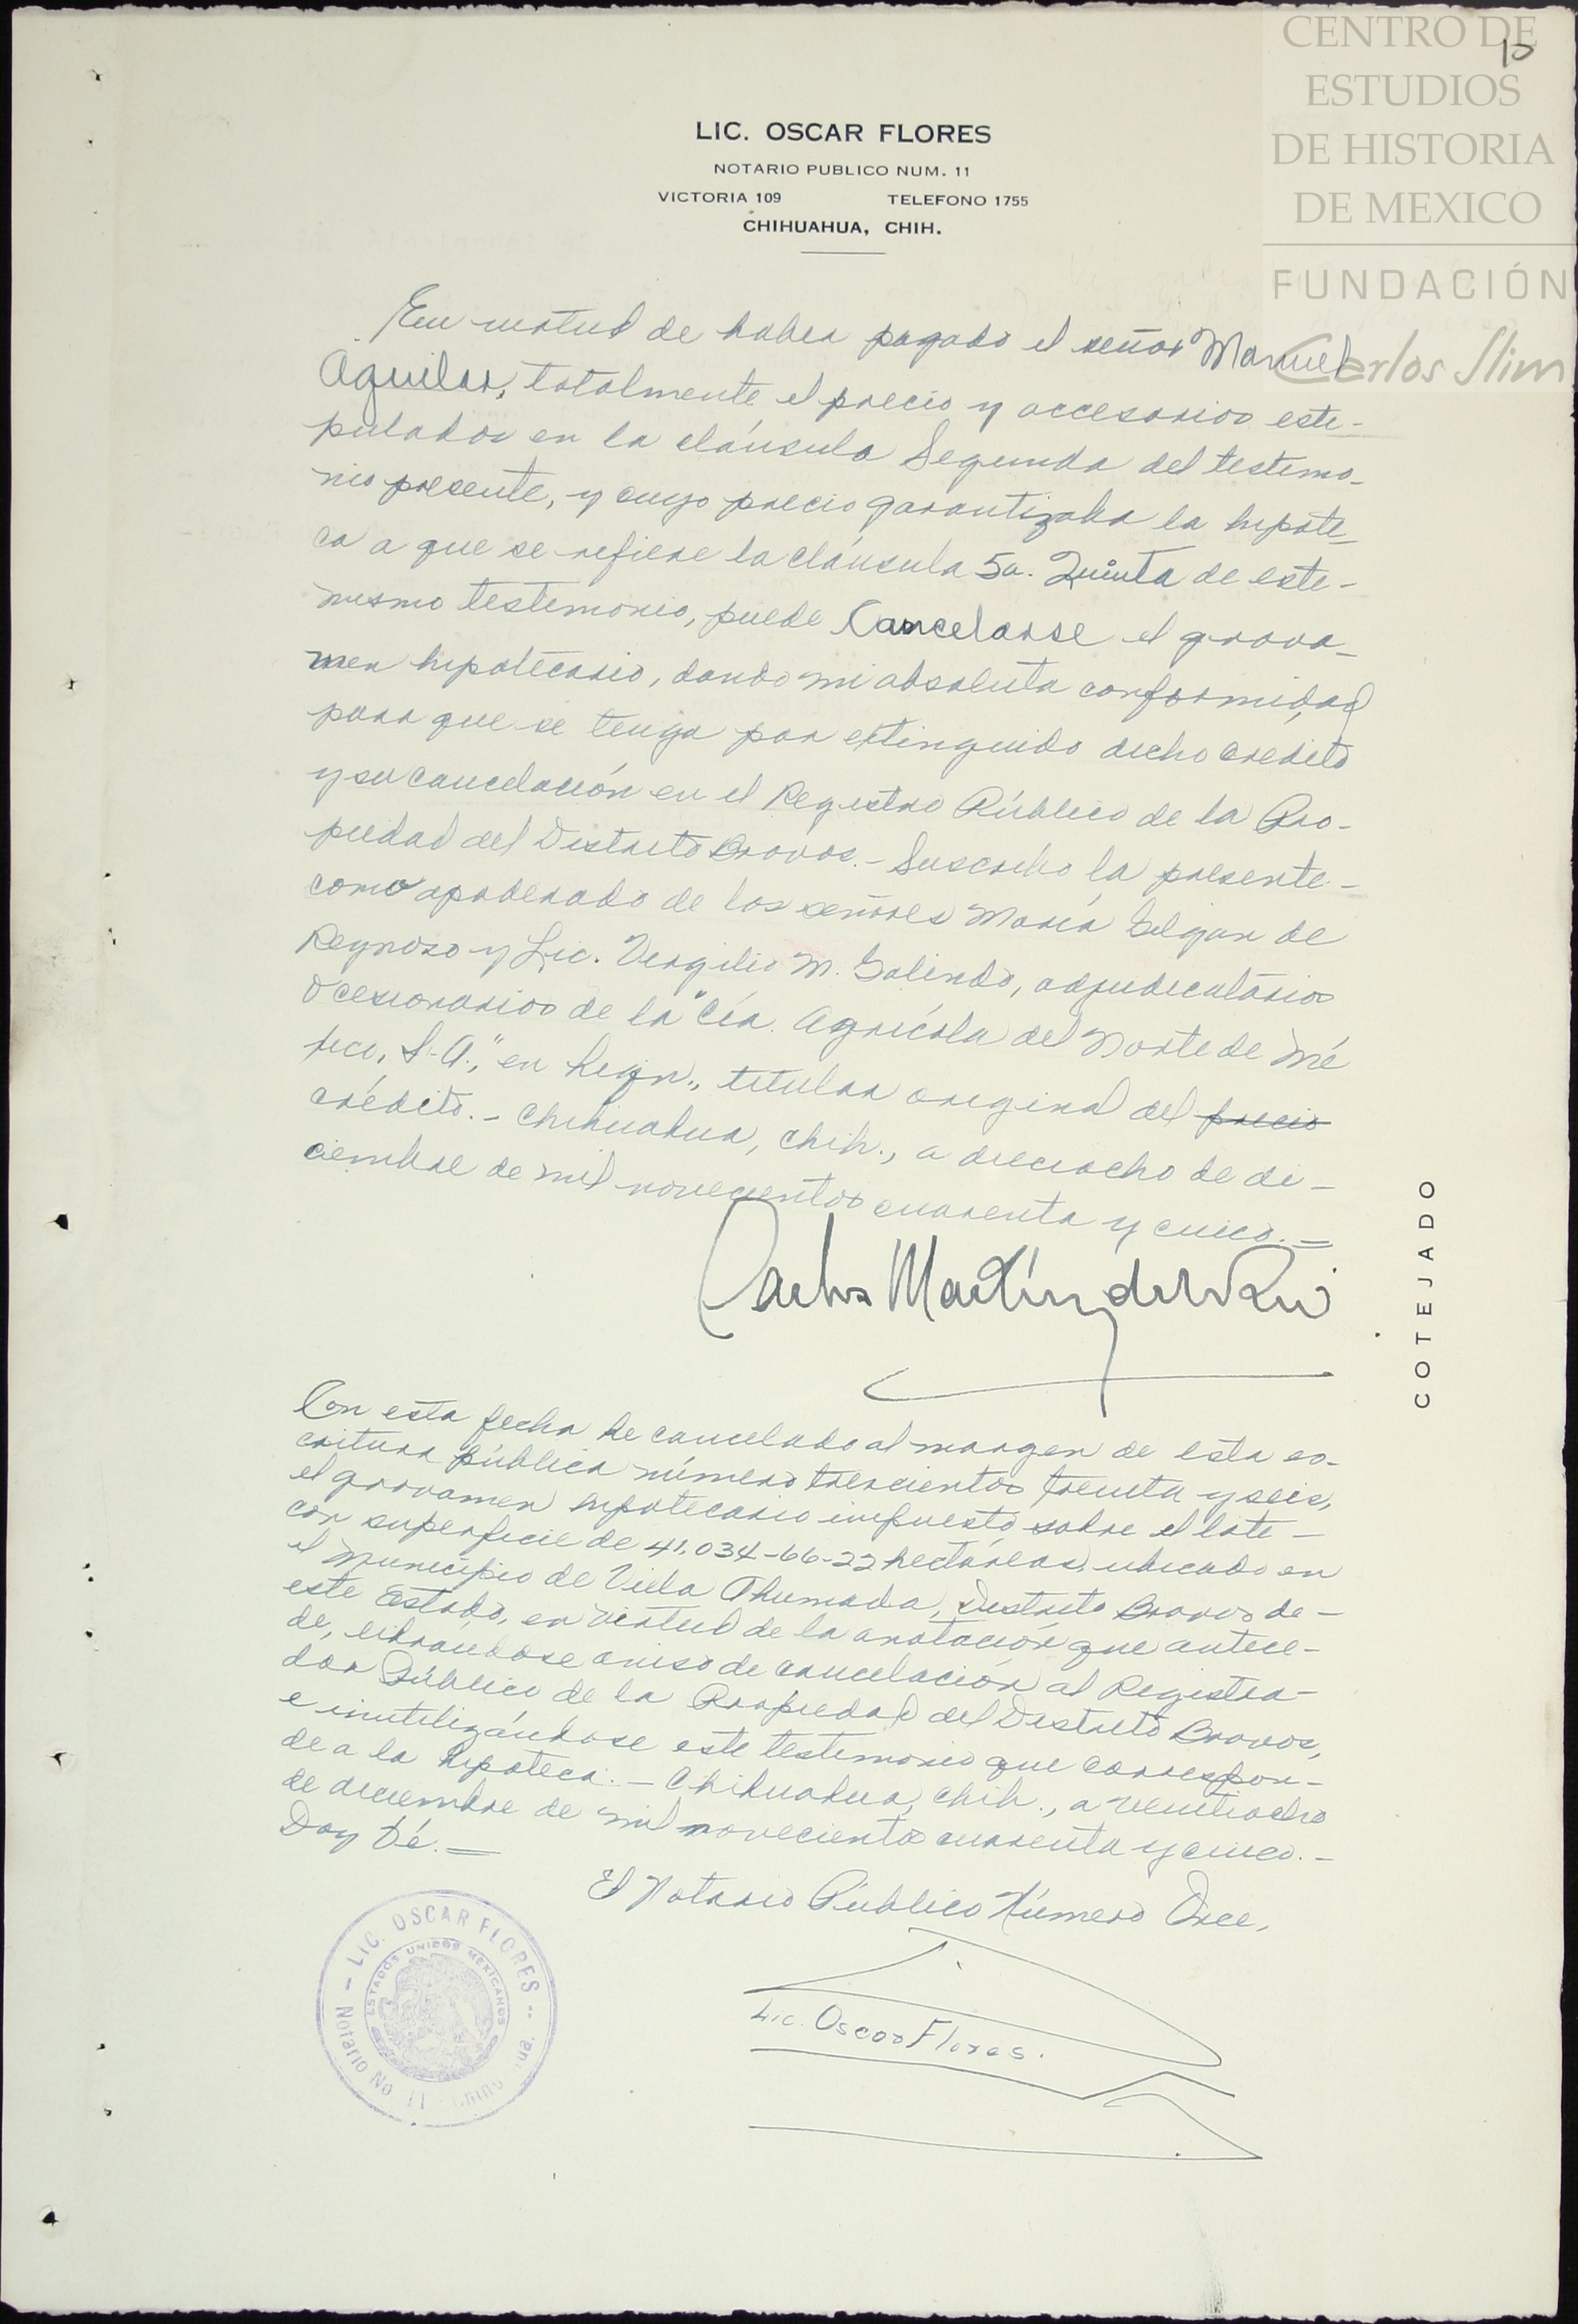 CENTRO DE
ESTUDIOS
DE HISTORIA
DE MEXICO
FUNDACIÓN
Carlos Slim
10
LIC. OSCAR FLORES
NOTARIO PUBLICO NUM. 11
VICTORIA 109 TELEFONO 1755
CHIHUAHUA, CHIH.
En virtud de haber pagado el señor Manuel
Aguilar, totalmente el precio y accesorios esti-
pulados en la cláusula Segunda del testimo-
nio presente, y cuyo precio garantizaba la hipote-
ca a que se refiere la cláusula 5a. Quinta de este-
mismo testimonio, puede Cancelarse el grava-
men hipotecario, dando mi absoluta conformidad
para que se tenga por extinguido dicho crédito
y su cancelación en el Registro Público de la Pro-
piedad del Distrito Bravos.- Suscribo la presente-
como apoderado de los señores María de
Reynoso y Lic. Virgilio M. Galindo, adjudicatarios
o cesionarios de la "Cía. Agrícola del Norte de Mé
xico, S.A.," en liqn., titular original del precio
crédito.- Chihuahua, Chih., a dieciocho de di-
ciembre de mil novecientos cuarenta y cinco.=
Carlos Martín del
COTEJADO
Con esta fecha he cancelado al margen de esta es-
critura pública número trescientos treinta y seis,
el gravamen hipotecario impuesto sobre el lote-
con superficie de 41,034-66-22 hectáreas, ubicado en
el Municipio de Villa Ahumada, Distrito Bravos de-
este Estado, en virtud de la anotación que antece-
de, librándose aviso de cancelación al Registra-
dor Público de la Propiedad del Distrito Bravos,
e inutilizándose este testimonio que correspon-
de a la hipoteca.- Chihuahua, Chih., a veintiocho
de diciembre de mil novecientos cuarenta y cinco.-
Doy fé.=
El Notario Público Número Once,
Lic. Oscar Flores.
LIC. OSCAR FLORES
ESTADOS UNIDOS MEXICANOS
Notario No. 11